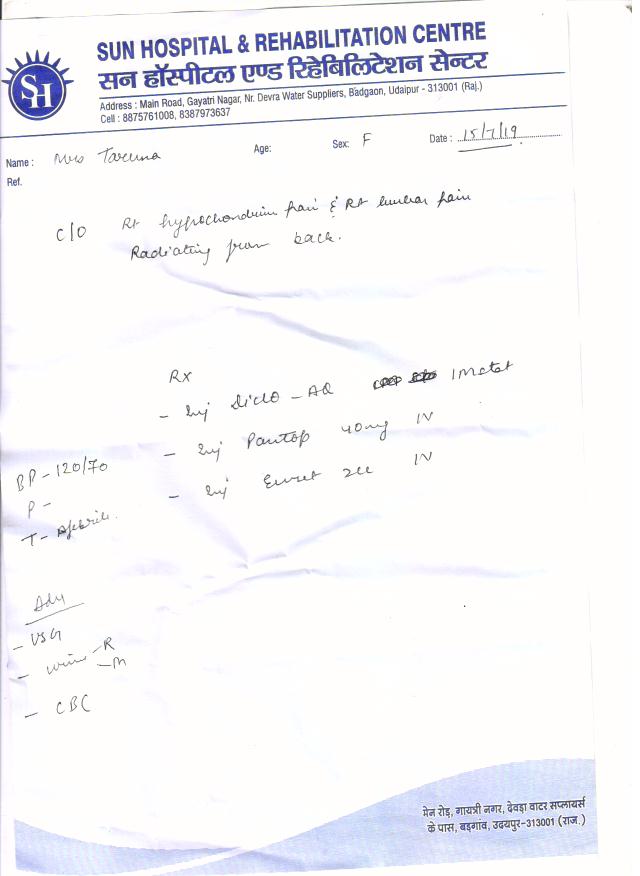 SH
SUN HOSPITAL & REHABILITATION CENTRE
सन हॉस्पीटल एण्ड रिहेबिलिटेशन सेन्टर
Address : Main Road, Gayatri Nagar, Nr. Devra Water Suppliers, Badgaon, Udaipur - 313001 (Raj.)
Cell : 8875761008, 8387973637
Name : Mrs Taruna Age: Sex: F Date : 15/7/19
Ref.
C/O Rt hypochondrium pain & Rt lumbar pain
Radiating from back.
Rx
- Inj Diclo-AQ 1M stat
- Inj Pantop 40mg IV
- Inj Emset 2cc IV
BP - 120/70
P -
T - Afebrile.
Adv
- USG
- Urine - R
- M
- CBC
मेन रोड़, गायत्री नगर, देवड़ा वाटर सप्लायर्स
के पास, बड़गांव, उदयपुर-313001 (राज.)